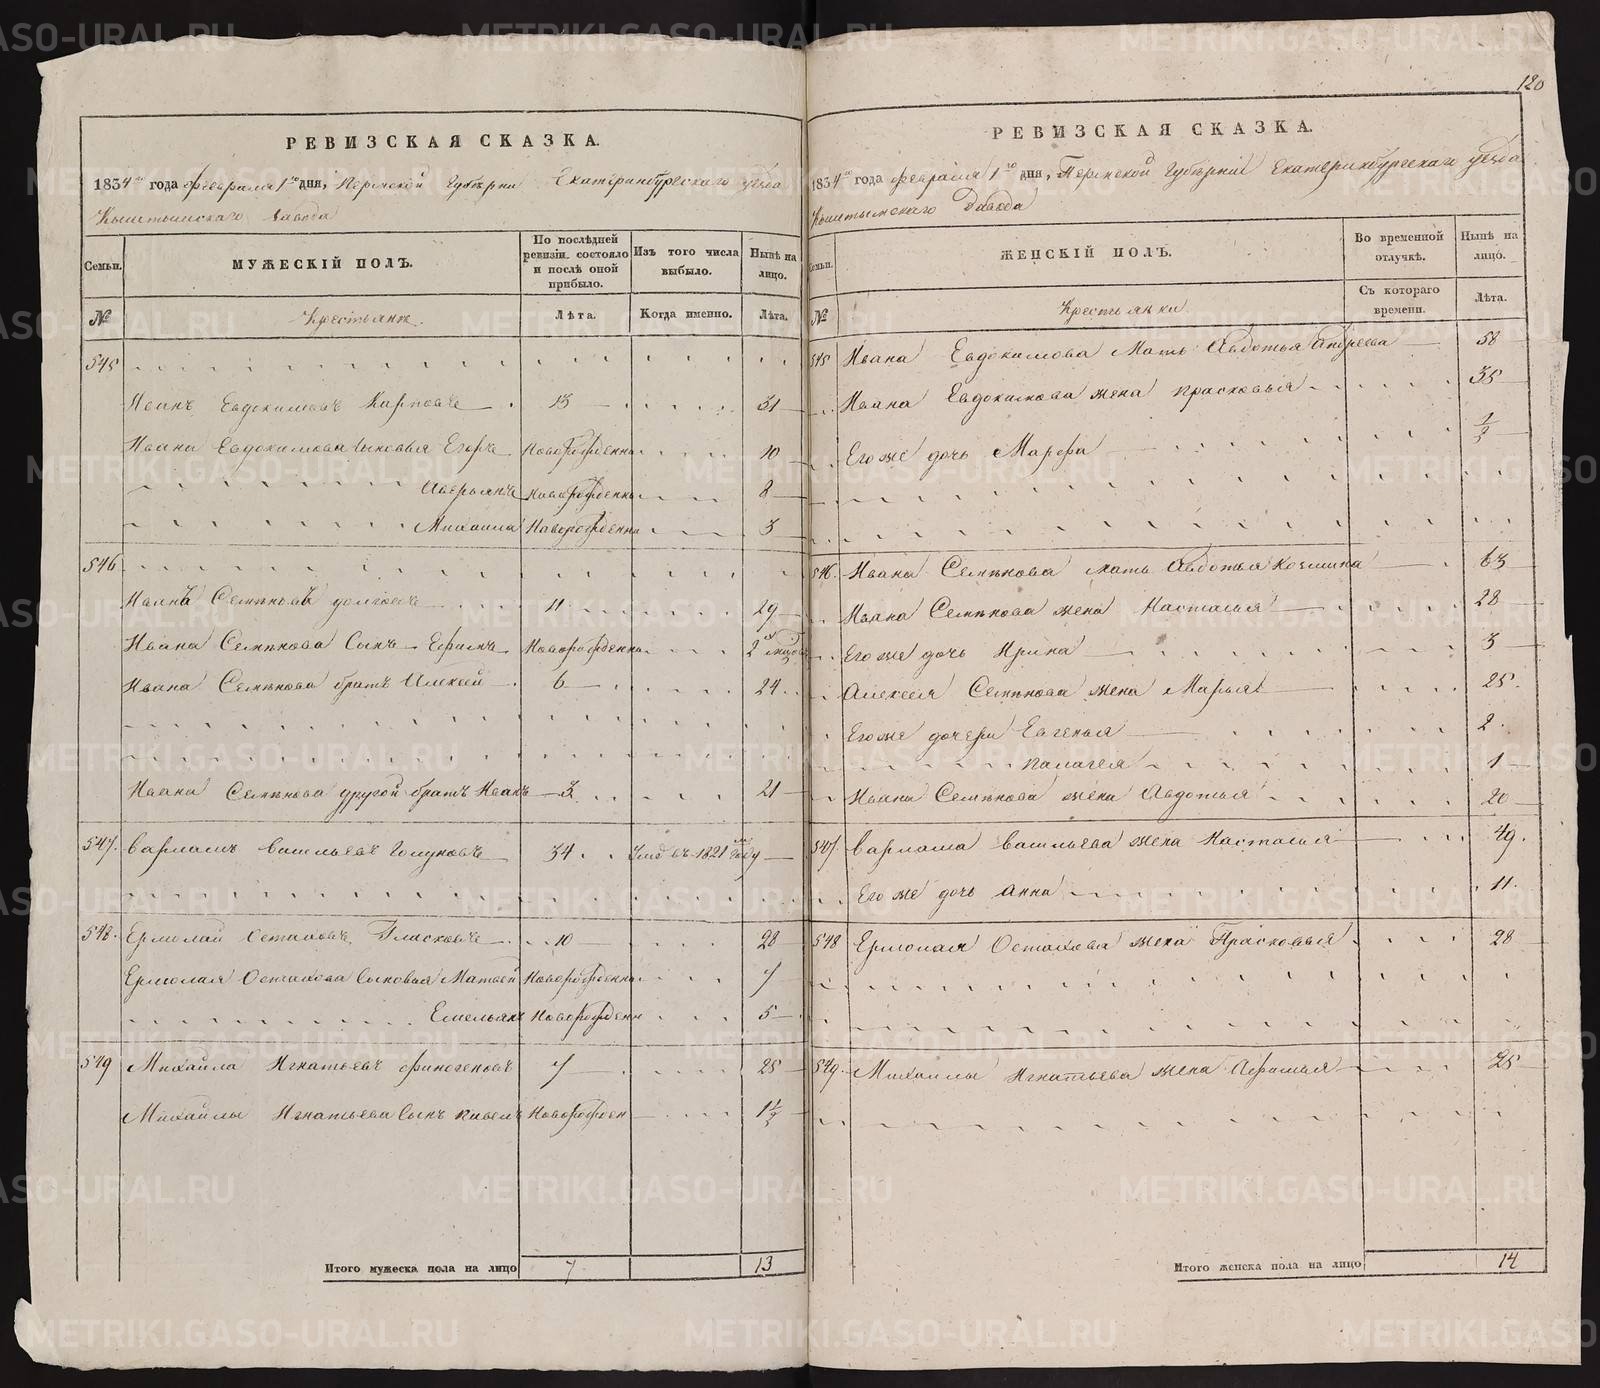 120
РЕВИЗСКАЯ СКАЗКА.
1834го года февраля 1го дня, Пермской Губернии Екатеринбургскаго уезда
Кыштымскаго Завода
Семьи. МУЖЕСКІЙ ПОЛЪ. По послѣдней ревизіи состояло и послѣ оной прибыло. Изъ того числа выбыло. Нынѣ на лицо.
№ Крестьяне. Лѣта. Когда именно. Лѣта.
545
Иванъ Евдокимовъ Карповъ 13 31
Ивана Евдокимова сыновья Егоръ Новорожденны 10
Аверьянъ Новорожденны 8
Михаила Новорожденны 3
546
Иванъ Семеновъ 11 29
Ивана Семенова Сынъ Ефимъ Новорожденны 2
Ивана Семенова братъ Алексей 6 24
Ивана Семенова другой братъ Иванъ 3 21
547. Варламъ Васильевъ Голуновъ 34 Умъ въ 1821 году
548. Ермолай Остаповъ 10 28
Ермолая Остапова Сыновья Матвей Новорожденны 7
Емельянъ Новорожденн 5
549 Михайла Игнатьевъ Финогеновъ 7 25
Михайлы Игнатьева Сынъ Павелъ Новорожден 1 1/2
Итого мужеска пола на лицо 7 13
РЕВИЗСКАЯ СКАЗКА.
1834го года февраля 1го дня, Пермской Губерніи Екатеринбургскаго уезда
Кыштымскаго Завода
Семьи. ЖЕНСКІЙ ПОЛЪ. Во временной отлучкѣ. Нынѣ на лицо.
№ Крестьянки Съ котораго времени. Лѣта.
545 Ивана Евдокимова Мать Авдотья Андреева 58
Ивана Евдокимова жена Прасковья 35
Егоже дочь Марфа 1/2
546. Ивана Семенова мать Авдотья Козмина 63
Ивана Семенова жена Настасья 28
Егоже дочь Ирина 3
Алексея Семенова жена Марья 25.
Егоже дочери Евгенья 2.
Палагея 1
Ивана Семенова жена Авдотья 20
547. Варлама Васильева жена Настасья 49.
Егоже дочь Анна 11.
548 Ермолая Остапова жена Прасковья 28
549. Михайлы Игнатьева жена Афимья 25
Итого женска пола на лицо 14
METRIKI.GASO-URAL.RU